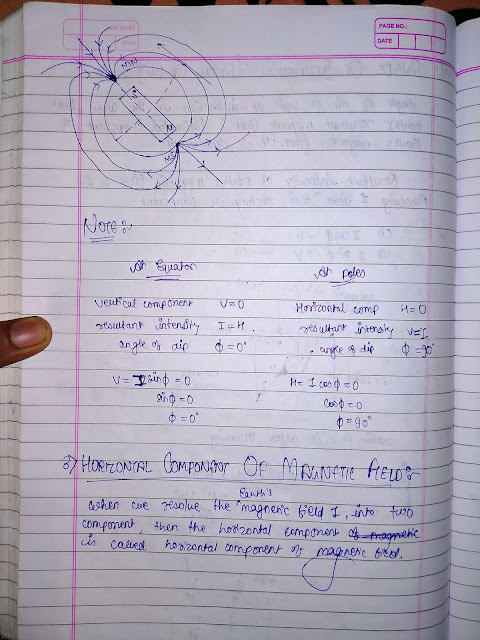 PAGE NO.:
DATE
MN
S
N
MS
NOTE:-
At Equator
At poles
vertical component V=0
Horizontal comp H=0
resultant intensity I=H.
resultant intensity V=I
angle of dip ϕ=0°
angle of dip ϕ=90°
V = I sinϕ = 0
H = I cosϕ = 0
sinϕ = 0
cosϕ = 0
ϕ = 0°
ϕ = 90°
3) HORIZONTAL COMPONENT OF MAGNETIC FIELD:-
when we resolve the Earth's magnetic field I, into two
component, then the horizontal component of magnetic
is called horizontal component of magnetic field.